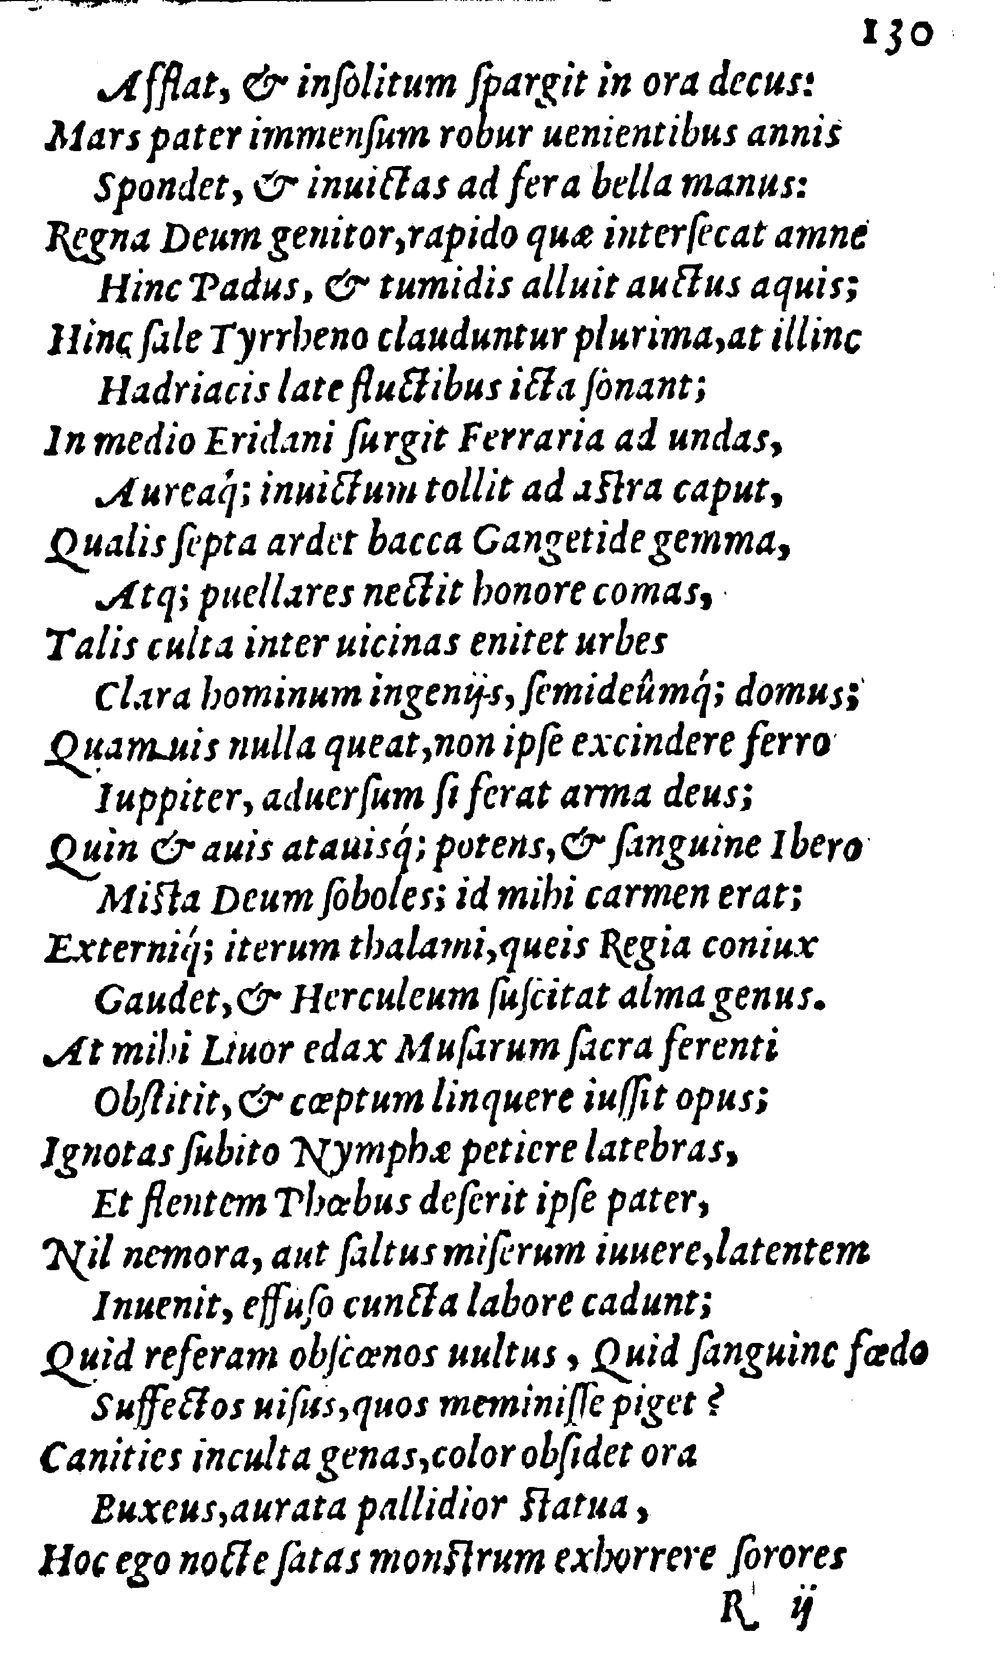 130
Afflat, & inſolitum ſpargit in ora decus:
Mars pater immenſum robur uenientibus annis
Spondet, & inuictas ad fera bella manus:
Regna Deum genitor, rapido quæ interſecat amne
Hinc Padus, & tumidis alluit auctus aquis;
Hinc ſale Tyrrheno clauduntur plurima, at illinc
Hadriacis late fluctibus icta ſonant;
In medio Eridani ſurgit Ferraria ad undas,
Aureaq́; inuictum tollit ad aſtra caput,
Qualis ſepta ardet bacca Gangetide gemma,
Atq; puellares nectit honore comas,
Talis culta inter uicinas enitet urbes
Clara hominum ingenijs, ſemideûmq́; domus;
Quamuis nulla queat, non ipſe excindere ferro
Iuppiter, aduerſum ſi ferat arma deus;
Quin & auis atauisq́; potens, & ſanguine Ibero
Miſta Deum ſoboles; id mihi carmen erat;
Externiq́; iterum thalami, queis Regia coniux
Gaudet, & Herculeum ſuſcitat alma genus.
At mihi Liuor edax Muſarum ſacra ferenti
Obſtitit, & cœptum linquere iuſſit opus;
Ignotas ſubito Nymphæ petiere latebras,
Et flentem Phœbus deſerit ipſe pater,
Nil nemora, aut ſaltus miſerum iuuere, latentem
Inuenit, effuſo cuncta labore cadunt;
Quid referam obſcœnos uultus, Quid ſanguine fœdo
Suffectos uiſus, quos meminiſſe piget?
Canities inculta genas, color obſidet ora
Buxeus, aurata pallidior ſtatua,
Hoc ego nocte ſatas monſtrum exhorrere ſorores
R ij